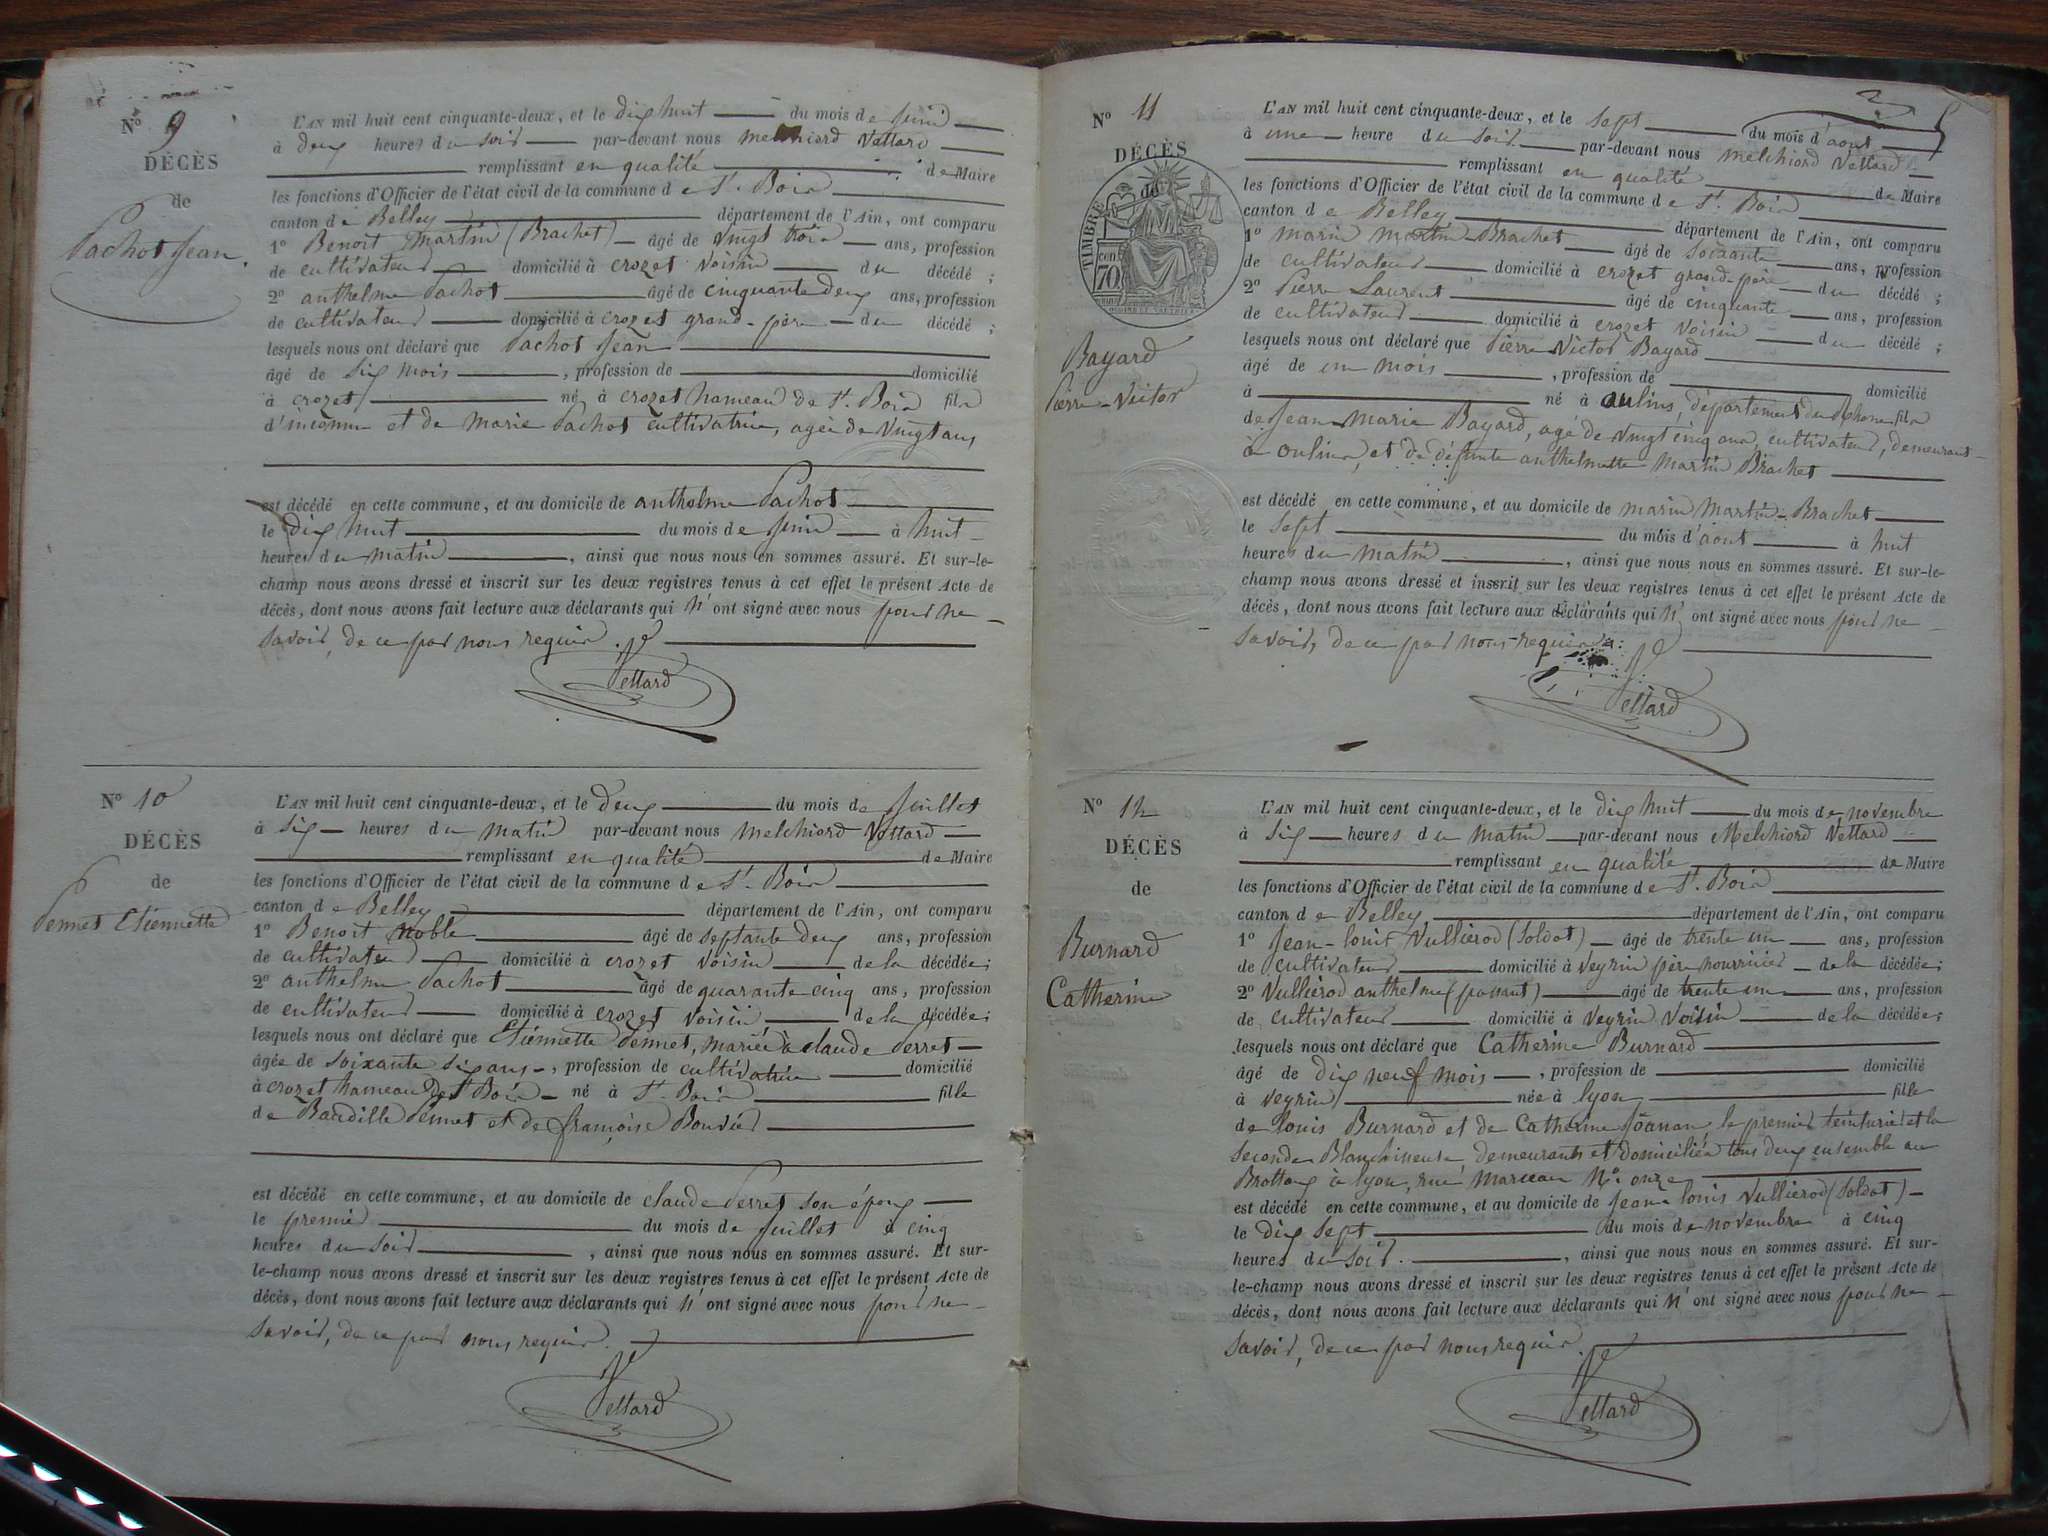 Nº 9
DÉCÈS
de
Pachot Jean.
L'AN mil huit cent cinquante-deux, et le dix huit du mois de Juin
à deux heures du soir par-devant nous melchiord Vettard
remplissant en qualité de Maire
les fonctions d'Officier de l'état civil de la commune de St. Bois
canton de Belley département de l'Ain, ont comparu
1º Benoit Martin (Brachet) âgé de vingt trois ans, profession
de cultivateur domicilié à crozet voisin du décédé ;
2º anthelme Pachot âgé de cinquante deux ans, profession
de cultivateur domicilié à crozet grand-père du décédé ;
lesquels nous ont déclaré que Pachot Jean
âgé de six mois , profession de domicilié
à crozet né à crozet hameau de St. Bois fils
d'inconnu et de Marie Pachot cultivatrice, agée de vingt ans,
est décédé en cette commune, et au domicile de anthelme Pachot
le dix huit du mois de Juin à huit
heures du matin , ainsi que nous nous en sommes assuré. Et sur-le-
champ nous avons dressé et inscrit sur les deux registres tenus à cet effet le présent Acte de
décès, dont nous avons fait lecture aux déclarants qui n'ont signé avec nous pour ne
savoir, de ce par nous requis.
Vettard
Nº 10
DÉCÈS
de
Pennet Etiennette
L'AN mil huit cent cinquante-deux, et le deux du mois de Juillet
à six heures du matin par-devant nous melchiord Vettard
remplissant en qualité de Maire
les fonctions d'Officier de l'état civil de la commune de St. Bois
canton de Belley département de l'Ain, ont comparu
1º Benoit Noble âgé de septante deux ans, profession
de cultivateur domicilié à crozet voisin de la décédée;
2º anthelme Pachot âgé de quarante cinq ans, profession
de cultivateur domicilié à crozet voisin de la décédée;
lesquels nous ont déclaré que Etiennette Pennet, mariée à claude Perret
âgée de soixante six ans, profession de cultivatrice domicilié
à crozet hameau de St Bois né à St. Bois fille
de Baudille Pennet et de françoise Bouvier
est décédé en cette commune, et au domicile de claude Perret son époux
le premier du mois de Juillet à cinq
heures du soir , ainsi que nous nous en sommes assuré. Et sur-
le-champ nous avons dressé et inscrit sur les deux registres tenus à cet effet le présent Acte de
décès, dont nous avons fait lecture aux déclarants qui n'ont signé avec nous pour ne
savoir, de ce par nous requis.
Vettard
Nº 11
DÉCÈS
de
TIMBRE
70
Bayard
Pierre-Victor
L'AN mil huit cent cinquante-deux, et le sept du mois d'aout
à une heure du soir par-devant nous melchiord Vettard
remplissant en qualité de Maire
les fonctions d'Officier de l'état civil de la commune de St. Bois
canton de Belley département de l'Ain, ont comparu
1º marin Martin-Brachet âgé de soixante ans, profession
de cultivateur domicilié à crozet grand-père du décédé ;
2º Pierre Laurent âgé de cinquante ans, profession
de cultivateur domicilié à crozet voisin du décédé ;
lesquels nous ont déclaré que Pierre Victor Bayard
âgé de un mois , profession de domicilié
à né à oulins, département du Rhone fils
de Jean Marie Bayard, agé de vingt cinq ans, cultivateur, demeurant
à oulins, et de défunte anthelmette Martin Brachet
est décédé en cette commune, et au domicile de marin Martin-Brachet
le sept du mois d'aout à huit
heures du matin , ainsi que nous nous en sommes assuré. Et sur-le-
champ nous avons dressé et inscrit sur les deux registres tenus à cet effet le présent Acte de
décès, dont nous avons fait lecture aux déclarants qui n'ont signé avec nous pour ne
savoir, de ce par nous requis.
Vettard
Nº 12
DÉCÈS
de
Burnard
Catherine
L'AN mil huit cent cinquante-deux, et le dix huit du mois de novembre
à six heures du matin par-devant nous Melchiord Vettard
remplissant en qualité de Maire
les fonctions d'Officier de l'état civil de la commune de St. Bois
canton de Belley département de l'Ain, ont comparu
1º Jean-louis Vullierod (Soldat) âgé de trente un ans, profession
de cultivateur domicilié à veyrin père nourricier de la décédée;
2º Vullierod anthelme (passant) âgé de trente un ans, profession
de cultivateur domicilié à veyrin voisin de la décédée;
lesquels nous ont déclaré que Catherine Burnard
âgé de dix neuf mois , profession de domicilié
à veyrin née à lyon fille
de louis Burnard et de Catherine Joanan, le premier teinturier et la
seconde Blanchisseuse, demeurants et domiciliés tous deux ensemble au
Brottaux à lyon, rue Marceau Nº onze
est décédé en cette commune, et au domicile de Jean louis Vullierod (Soldat)
le dix sept du mois de novembre à cinq
heures du soir. , ainsi que nous nous en sommes assuré. Et sur-
le-champ nous avons dressé et inscrit sur les deux registres tenus à cet effet le présent Acte de
décès, dont nous avons fait lecture aux déclarants qui n'ont signé avec nous pour ne
savoir, de ce par nous requis.
Vettard